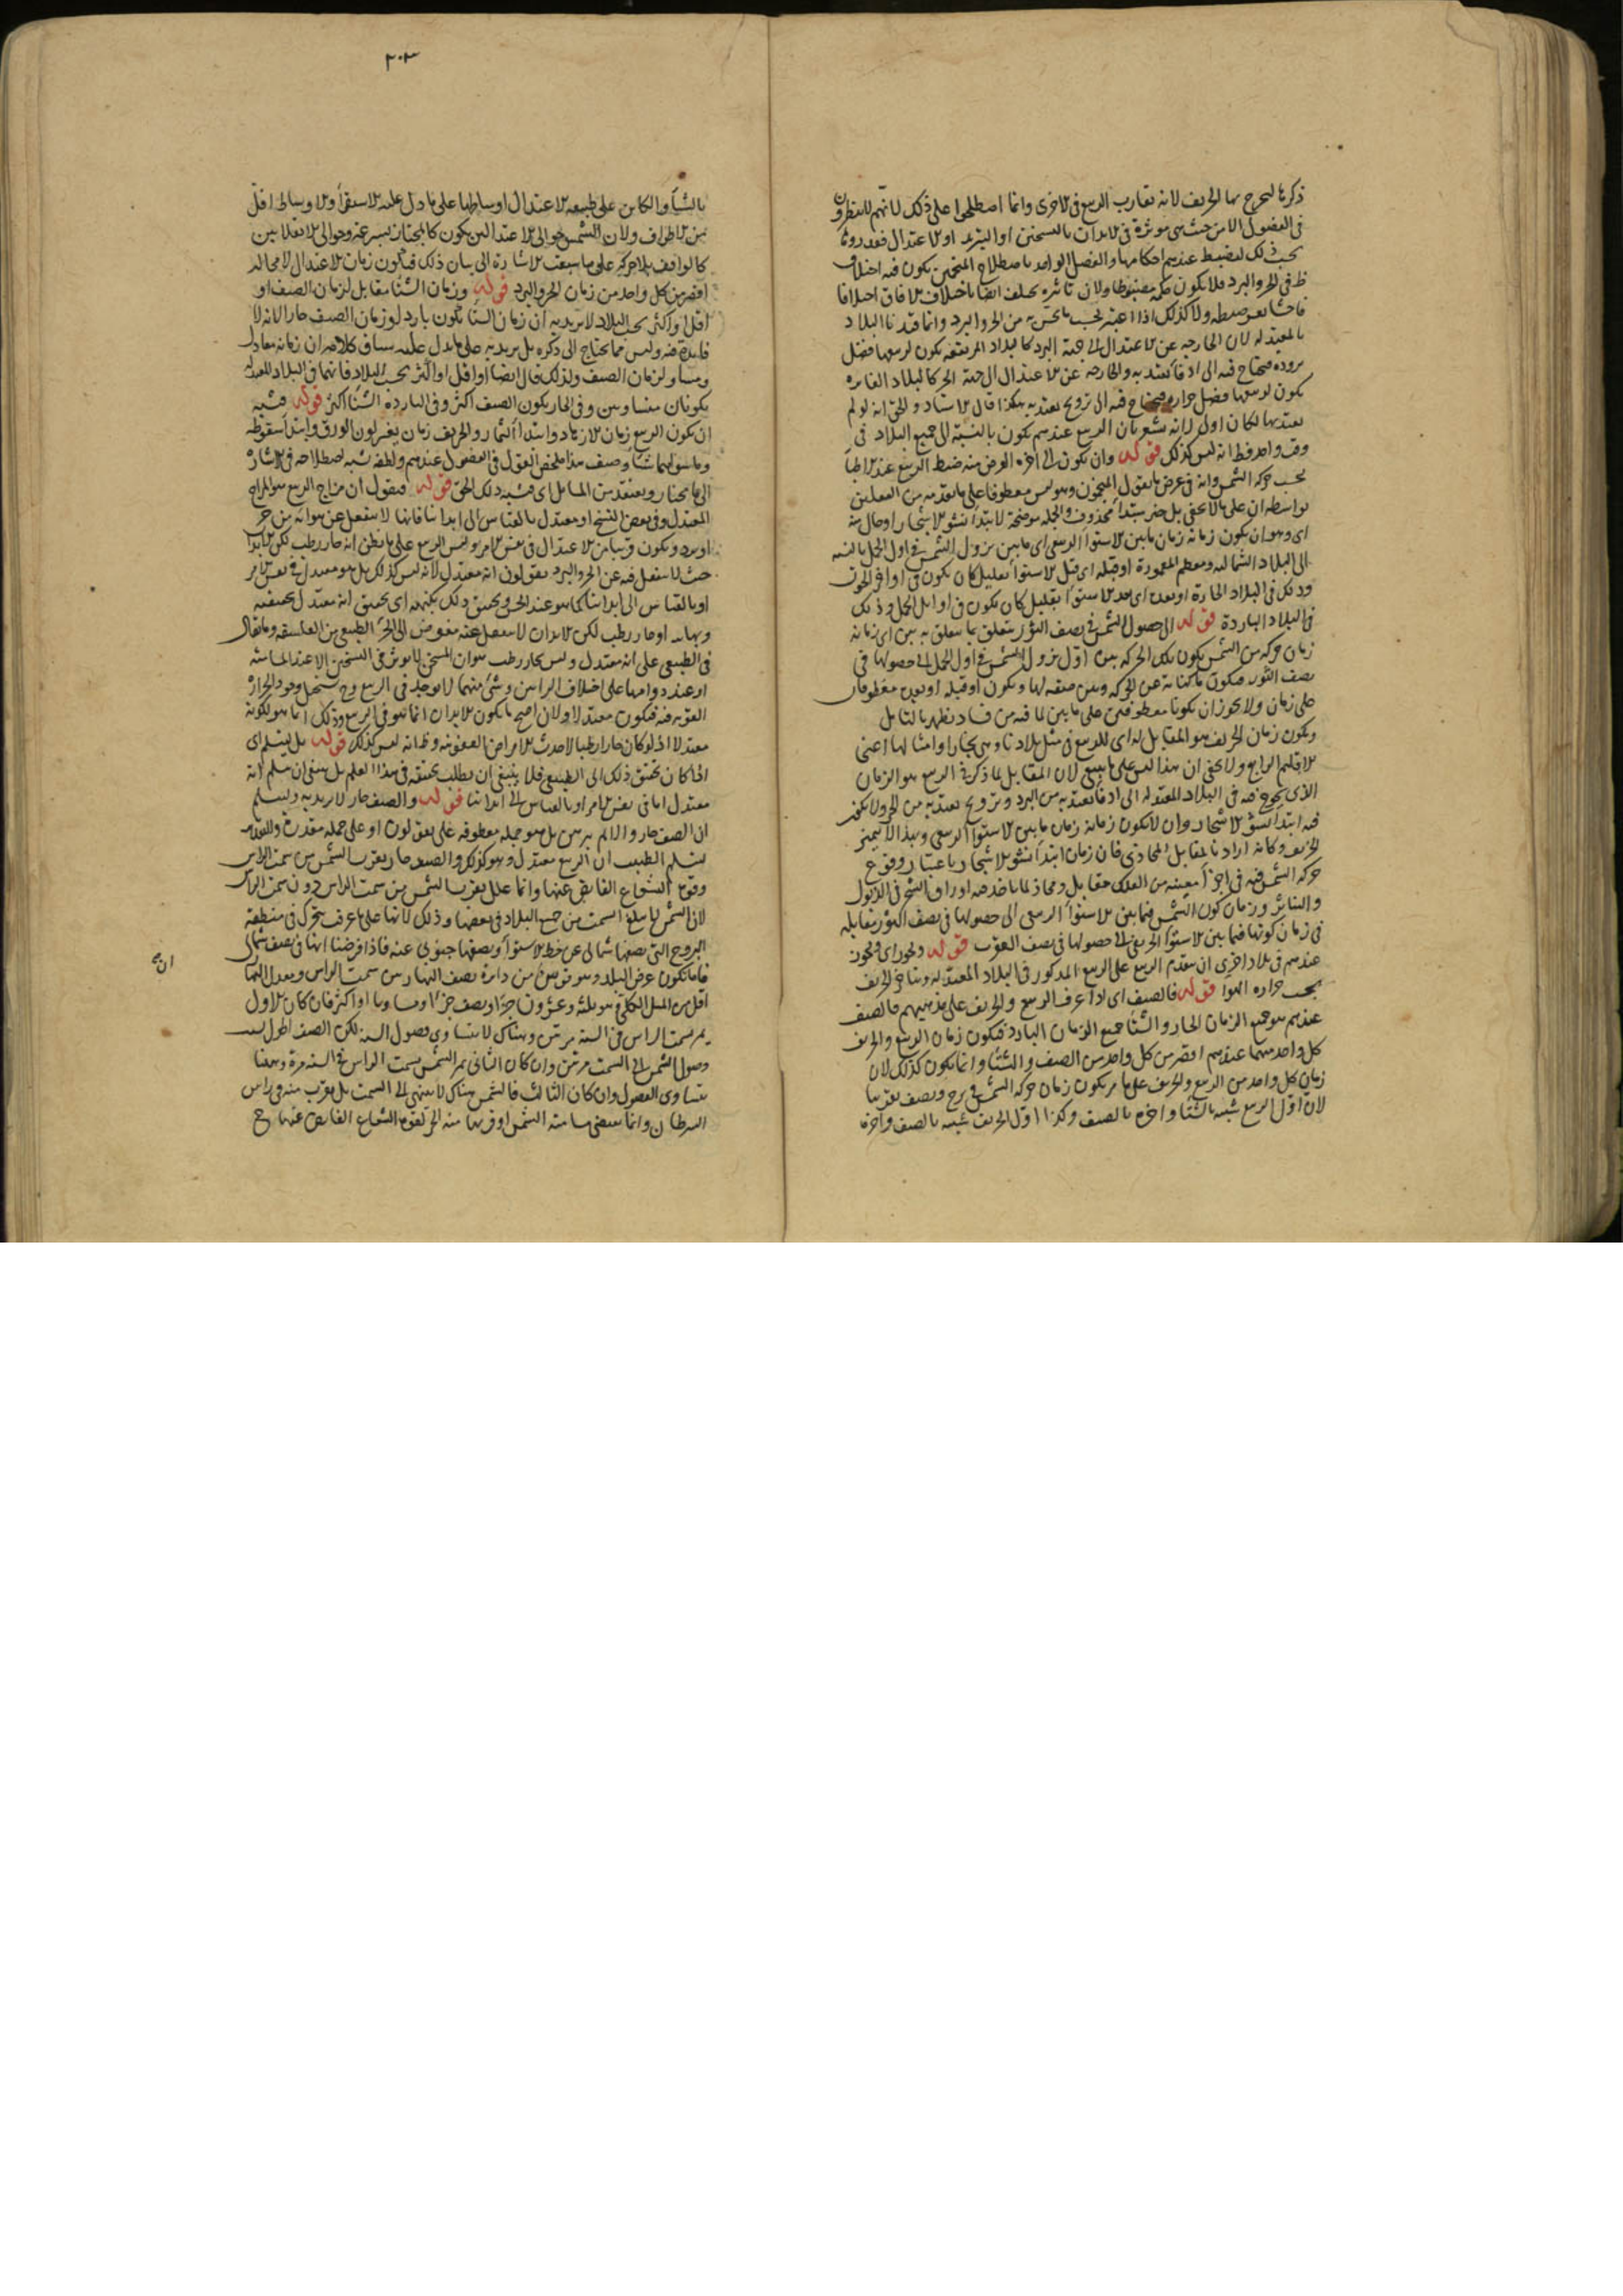 ذكرنا ليخرج بها الخريف لانه يقارب الربيع فى الاخرى وانما اصطلحوا على ذلك لانهم لا ينظرون
فى الفصول الا من حيث هى موثرة فى الابدان بالتسخين او التبريد او الاعتدال فقدروها
بحيث ذلك لينضبط عندهم احكامها والفصل الواحد باصطلاح المنجمين يكون فيه اختلاف
ظ فى الحر والبرد فلا يكون حكمه مضبوطا ولان تاثيره يختلف ايضا باختلاف الافاق اختلافا
فاحشا يعسر ضبطه ولا كذلك اذا اعتبر بحسب ما يحس به من الحر والبرد وانما قيدنا البلاد
بالمعتدلة لان الخارجة عن الاعتدال الى جهة البرد كالبلاد المرتفعة يكون لربيعها فضل
برودة فيحتاج فيه الى ادفا يعتد به والخارجة عن الاعتدال الى جهة الحر كالبلاد الغائرة
يكون لربيعها فضل حرارة فيحتاج فيه الى ترويح يعتد به هكذا قال الاستاد والحق انه لو لم
يعتد بها لكان اولى لانه يشعر بان الربيع عندهم يكون بالنسبة الى جميع البلاد فى
وقت واحد فظ انه ليس كذلك قوله وان يكون الى اخره الغرض منه ضبط الربيع عند الاطبا
بحسب حركة الشمس وانه فى عرض ما يقول المنجمون وهو ليس معطوفا على ما تقدمه من الفعلين
بواسطة ان على ما لا يخفى بل خبر مبتدأ محذوف والجملة موضحة لابتدأ نشو الاشجار او حال منه
اى وهو ان يكون زمانه زمان ما بين الاستوا الربيعى اى ما بين نزول الشمس فى اول الحمل بالنسبة
الى البلاد الشمالية ومعظم المعمورة او قبله اى قبل الاستوا بقليل كان يكون فى اواخر الحوت
وذلك فى البلاد الحارة او بعده اى بعد الاستوا بقليل كان يكون فى اوايل الحمل وذلك
فى البلاد الباردة قوله الى حصول الشمس فى نصف الثور يتعلق بما يتعلق به بين اى زمانه
زمان حركة من الشمس يكون تلك الحركة بين اول نزول الشمس فى اول الحمل الى حصولها فى
نصف الثور فيكون ما كناية عن الحركة وبين صفة لها ويكون او قبله او بعده معطوفان
على زمان ولا يجوز ان يكونا معطوفين على ما بين لما فيه من فساد يظهر بالتامل
ويكون زمان الخريف هو المقابل له اى للربيع فى مثل بلادنا وهى بخارا وامثالها اعنى
الاقليم الرابع ولا يخفى ان هذا ليس على ما ينبغى لان المقابل لما ذكر فى الربيع هو الزمان
الذى يحوج فيه فى البلاد المعتدلة الى ادفا يعتد به من البرد وترويح يعتد به من الحر ولا يكون
فيه ابتدأ نشو الاشجار وان لا يكون زمانه زمان ما بين الاستوا الربيعى وبهذا لا يتميز
الخريف وكانه اراد بالمقابل المحاذى فان زمان ابتدأ نشو الاشجار باعتبار وقوع
حركة الشمس فيه فى اجزأ معينة من الفلك مقابل ومحاذ لما ياخذ فيه اوراق الشجر فى الذبول
والتناثر وزمان كون الشمس فيما بين الاستوأ الربيعى الى حصولها فى نصف الثور يقابله
فى زمان كونها فيما بين الاستوأ الخريفى الى حصولها فى نصف العقرب قوله ويجوز اى ويجوز
عندهم فى بلاد اخرى ان يتقدم الربيع على الربيع المذكور فى البلاد المعتدلة ويتاخر الخريف
بحسب حرارة الهوا قوله فالصيف اى اذا عرف الربيع والخريف على مذهبهم فالصيف
عندهم هو جميع الزمان الحار والشتأ جميع الزمان البارد فيكون زمان الربيع والخريف
كل واحد منهما عندهم اقصر من كل واحد من الصيف والشتأ وانما يكون كذلك لان
زمان كل واحد من الربيع والخريف على ما مر يكون زمان حركة الشمس فى برج ونصف تقريبا
لان اول الربيع شبيه بالشتأ واخره بالصيف وكذا اول الخريف شبيه بالصيف واخره
٢٠٣
بالشتأ والكاين على طبيعة الاعتدال اوساطها على ما دل عليه الاستقرأ والاوساط اقل
من الاطراف ولان الشمس حوالى الاعتدالين يكون كالمجتاز بسرعة وحوالى الانقلابين
كالواقف بلا حركة على ما سبقت الاشارة الى بيان ذلك فيكون زمان الاعتدال لا محالة
اقصر من كل واحد من زمان الحر والبرد قوله وزمان الشتا مقابل لزمان الصيف او
اقل او اكثر بحسب البلاد لا يريد به ان زمان الشتا يكون باردا وزمان الصيف حارا لانه لا
فايدة فيه وليس مما يحتاج الى ذكره بل يريد به على ما يدل عليه سياق كلامه ان زمانه معادل
ومساو لزمان الصيف ولذلك قال ايضا او اقل او اكثر بحسب البلاد فانهما فى البلاد المعتدلة
يكونان متساويين وفى الحار يكون الصيف اكثر وفى الباردة الشتا اكثر قوله فيشبه
ان يكون الربيع زمان الازهار وابتدأ الثمار والخريف زمان تغير لون الورق وابتدأ سقوطه
وما سواهما شتأ وصيف هذا ملخص القول فى الفصول عندهم ولفظة يشبه اصطلاحه فى الاشارة
الى ما يختار ويعتقد من المسايل اى فيشبه ذلك الحق قوله فيقول ان مزاج الربيع هو المزاج
المعتدل وفى بعض النسخ او معتدل بالقياس الى ابداننا فانها لا ينفعل عن هوائه من حر
او برد ويكون قريبا من الاعتدال فى نفس الامر وليس الربيع على ما يظن انه حار رطب لكن الابدان
حيث لا ينفعل فيه عن الحر والبرد يقولون انه معتدل لانه ليس كذلك بل هو معتدل فى نفس الامر
او بالقياس الى ابداننا كما هو عند الحس وتحقيق ذلك بكنهه اى تحقيق انه معتدل بحقيقته
وبهائه او حار رطب لكن الابدان لا ينفعل عنه مفوض الى الجزء الطبيعى من الفلسفة وما يقال
فى الطبيعى على انه معتدل وليس بحار رطب هو ان المسخن لا يوثر فى التسخين الا عند المماسة
او عند دوامها على اختلاف الراىين وشئ منهما لا يوجد فى الربيع وح يستحيل وجود الحرارة
القوية فيه فيكون معتدلا ولان اصح ما يكون الابدان انما هو فى الربيع وذلك انما هو لكونه
معتدلا اذ لو كان حارا رطبا لاحدث الامراض العفونية وظ انه ليس كذلك قوله بل ليسلم اى
اذا كان تحقيق ذلك الى الطبيعى فلا ينبغى ان يطلب تحقيقه فى هذا العلم بل ينبغى ان يسلم انه
معتدل اما فى نفس الامر او بالقياس الى ابداننا قوله والصيف حار لا يريد به وليسلم
ان الصيف حار والا لم يبرهن بل هو جملة معطوفة على يقولون او على جملة مقدرة والتقدير
ليسلم الطبيب ان الربيع معتدل وهو كذلك والصيف حار بقرب الشمس من سمت الراس
وقوة الشعاع الفايض عنها وانما علل بقرب الشمس من سمت الراس دون سمت الراس
لان الشمس لها مبلغ السمت من حيث البلاد فى بعضها وذلك لانها على ما عرف يتحرك فى منطقة
البروج التى نصفها شمالى عن خط الاستوأ ونصفها جنوبى عنه فاذا فرضنا انها فى نصف شمالى
فاما يكون عرض البلد وهو قوس من دايرة نصف النهار بين سمت الراس ومعدل النهار
اقل من الميل الكلى وهو ثلثة وعشرون جزأ ونصف جزا او مساويا او اكثر فان كان الاول
يمر بسمت الراس فى السنة مرتين وهناك لا يتساوى فصول السنة لكن الصيف اطول بسبب
وصول الشمس الى السمت مرتين وان كان الثانى يمر الشمس بسمت الراس فى السنة مرة وهنا
يتساوى الفصول وان كان الثالث فالشمس هناك لا ينتهى الى السمت بل يقرب منه فى راس
السرطان وانما يقتضى مسامتة الشمس او قربها منه الحر لقوة الشعاع الفايض عنها ح